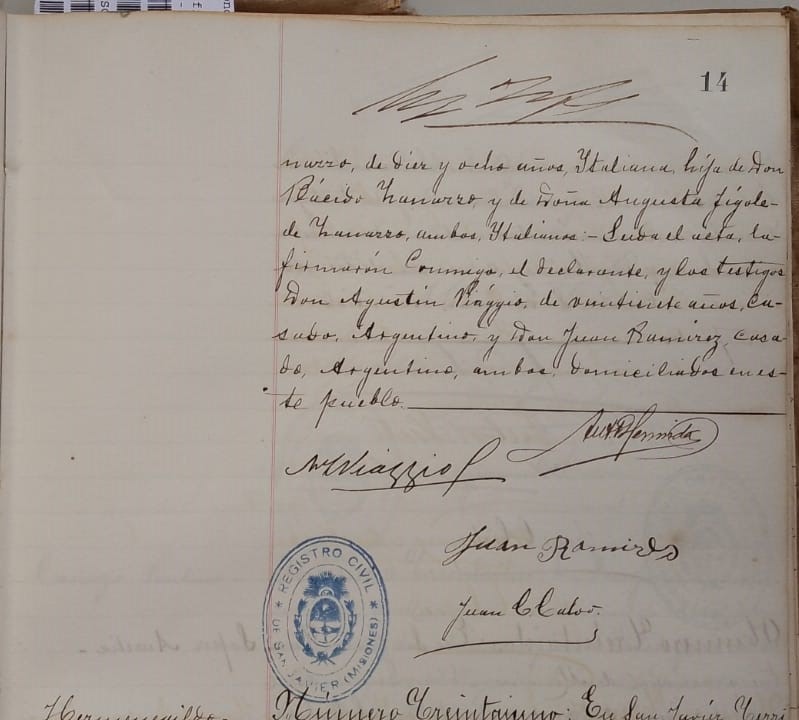 14
nazzo, de diez y ocho años, Italiana, hija de Don
Plácido Zanazzo y de Doña Augusta Figole-
de Zanazzo, ambos, Italianos:- Leida el acta, la-
firmarón Conmigo, el declarante, y los testigos
Don Agustin Viággio, de veintisiete años, Ca-
sado, Argentino, y Don Juan Ramirez, casa-
do, Argentino, ambos, domiciliados en es-
te pueblo.
Hermida
Viaggio
Juan Ramires
Juan C Calvo
REGISTRO CIVIL
DE SAN JAVIER (MISIONES)
Hermenegildo-
Número Treintaiuno: En San Javier Terri